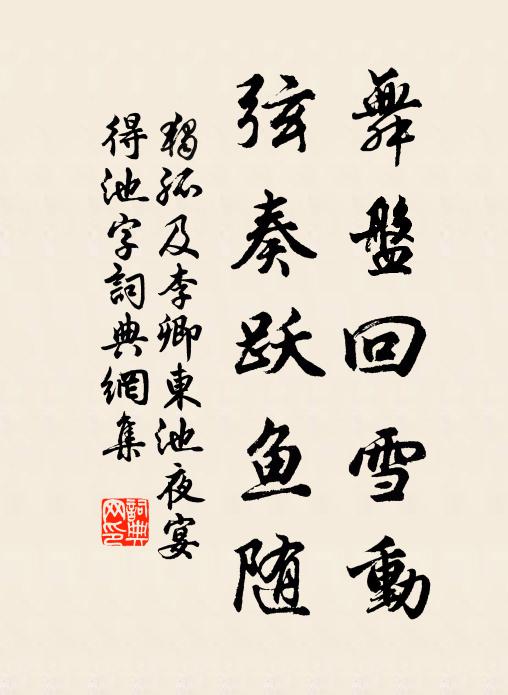 舞盤回雪動
弦奏跃鱼随
獨孤及李卿東池夜宴
得池字詞典網集
詞典网印